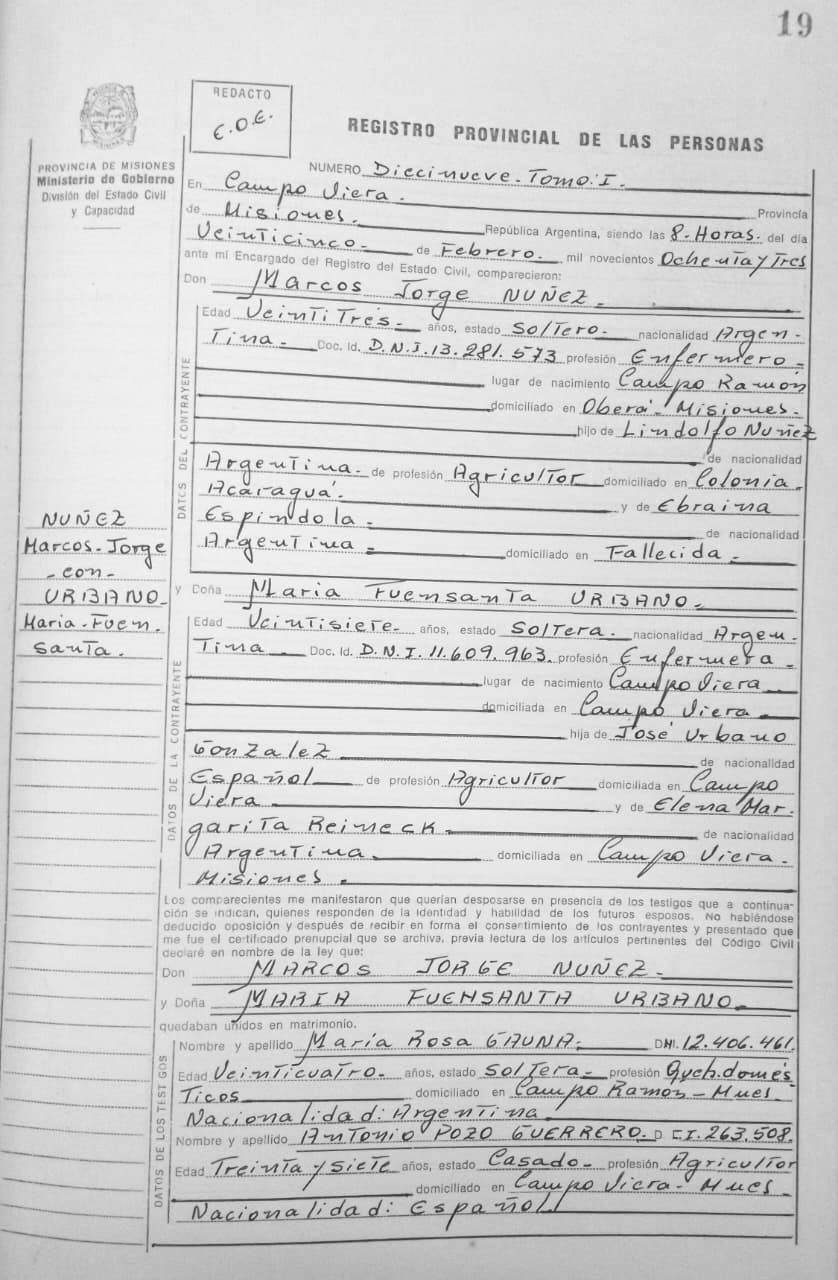 19
REDACTO
E.O.E.
REGISTRO PROVINCIAL DE LAS PERSONAS
PROVINCIA DE MISIONES
Ministerio de Gobierno
División del Estado Civil
y Capacidad
NUMERO Diecinueve. Tomo: I.
En Campo Viera. Provincia
de Misiones. República Argentina, siendo las 8. Horas. del día
Veinticinco. de Febrero. mil novecientos Ochenta y Tres
ante mi Encargado del Registro del Estado Civil, comparecieron:
Don Marcos Jorge NUÑEZ.
DATOS DEL CONTRAYENTE
Edad Veintitrés. años, estado Soltero. nacionalidad Argen-
tina. Doc. Id. D.N.I. 13.281.573 profesión Enfermero.
lugar de nacimiento Campo Ramón
domiciliado en Oberá. Misiones.
hijo de Lindolfo Nuñez
de nacionalidad
Argentina. de profesión Agricultor domiciliado en Colonia.
Acaraguá. y de Ebraina
Espindola. de nacionalidad
Argentina domiciliado en Fallecida.
NUÑEZ
Marcos. Jorge
- con -
URBANO.
Maria. Fuen.
Santa.
y Doña Maria Fuensanta URBANO.
DATOS DE LA CONTRAYENTE
Edad Veintisiete. años, estado Soltera. nacionalidad Argen-
tina. Doc. Id. D.N.I. 11.609.963. profesión Enfermera.
lugar de nacimiento Campo Viera
domiciliada en Campo Viera.
hija de José Urbano
Gonzalez de nacionalidad
Español de profesión Agricultor domiciliada en Campo
Viera y de Elena Mar-
garita Reineck. de nacionalidad
Argentina. domiciliada en Campo Viera.
Misiones.
Los comparecientes me manifestaron que querían desposarse en presencia de los testigos que a continua-
ción se indican, quienes responden de la identidad y habilidad de los futuros esposos. No habiéndose
deducido oposición y después de recibir en forma el consentimiento de los contrayentes y presentado que
me fue el certificado prenupcial que se archiva, previa lectura de los artículos pertinentes del Código Civil
declaré en nombre de la ley que:
Don MARCOS JORGE NUÑEZ.
y Doña MARIA FUENSANTA URBANO.
quedaban unidos en matrimonio.
DATOS DE LOS TESTIGOS
Nombre y apellido María Rosa GAUNA. DNI. 12.406.461.
Edad Veinticuatro. años, estado Soltera. profesión Queh. domés-
ticos domiciliado en Campo Ramón -
Nacionalidad: Argentina.
Nombre y apellido Antonio POZO GUERRERO. D C.I. 263.508.
Edad Treinta y siete años, estado Casado. profesión Agricultor
domiciliado en Campo Viera.
Nacionalidad: Español